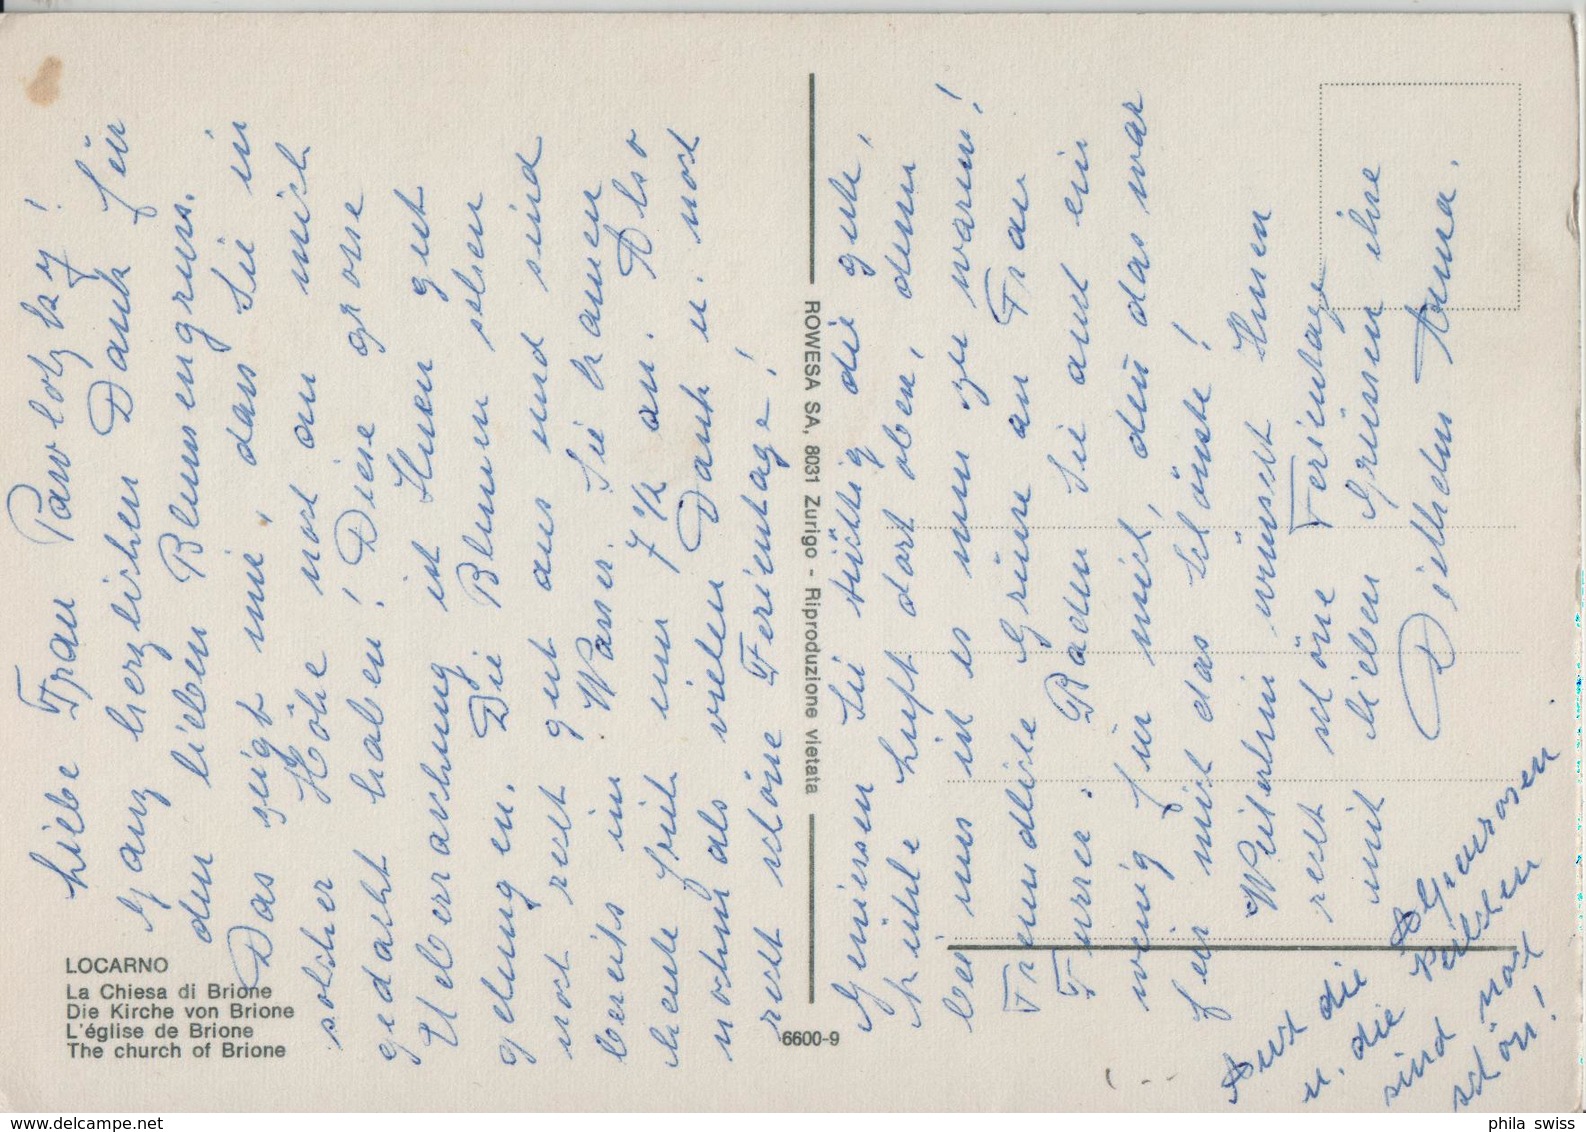 LOCARNO
La Chiesa di Brione
Die Kirche von Brione
L'église de Brione
The church of Brione
6600-9
ROWESA SA, 8031 Zurigo - Riproduzione vietata
Liebe Frau Pawlotzky!
Ganz herzlichen Dank für
den lieben Blumengruss.
Das zeigt mir, dass Sie in
solcher Höhe noch an mich
gedacht haben! Diese grosse
Ueberraschung ist Ihnen gut
gelungen. Die Blumen sehen
noch recht gut aus und sind
bereits im Wasser. Sie kamen
heute früh um 7 ½ an. Also
nochmals vielen Dank u. noch
recht schöne Ferientage!
Geniessen Sie tüchtig die gute,
kühle Luft dort oben, denn
bei uns ist es nun zu warm!
Freundliche Grüsse an Frau
Furrer. Baden Sie auch ein
wenig für mich, denn das war
für mich das Schönste!
Weiterhin wünscht Ihnen
recht schöne Ferientage
mit lieben Grüssen ihre
Dilhelm Anna.
Auch die Alpenrosen
u. die Veilchen
sind noch
schön!
phila swiss